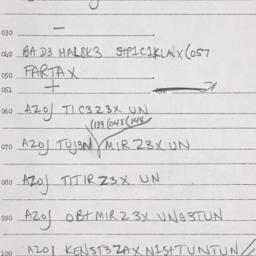 030 —
040 BAD3 HALSK3 STP1C1KLAX(057
050 FARTAX
051 +
060 AZOJ TIC3Z3X UN
(139(048(148
070 AZOJ TUJ3N/MIRZ3X UN
080 AZOJ TITIRZ3X UN
090 AZOJ OBTMIRZ3X UNG3TUN
100 AZOJ KENST3ZAX N1STTUNTUN/